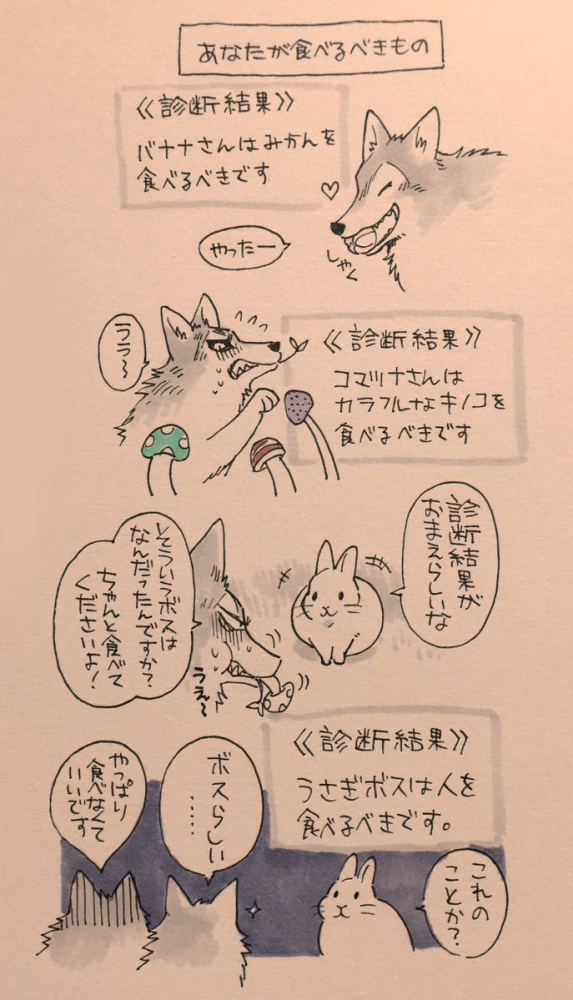 あなたが食べるべきもの
《診断結果》
バナナさんはみかんを
食べるべきです
やったー
しゃく
ララ〜
《診断結果》
コマツナさんは
カラフルなキノコを
食べるべきです
診断結果が
おまえらしいな
そういうボスは
なんだったんですか?
ちゃんと食べて
くださいよ!
うえ〜
《診断結果》
うさぎボスは人を
食べるべきです。
これの
ことか?
ボスらしい
……
やっぱり
食べなくて
いいです